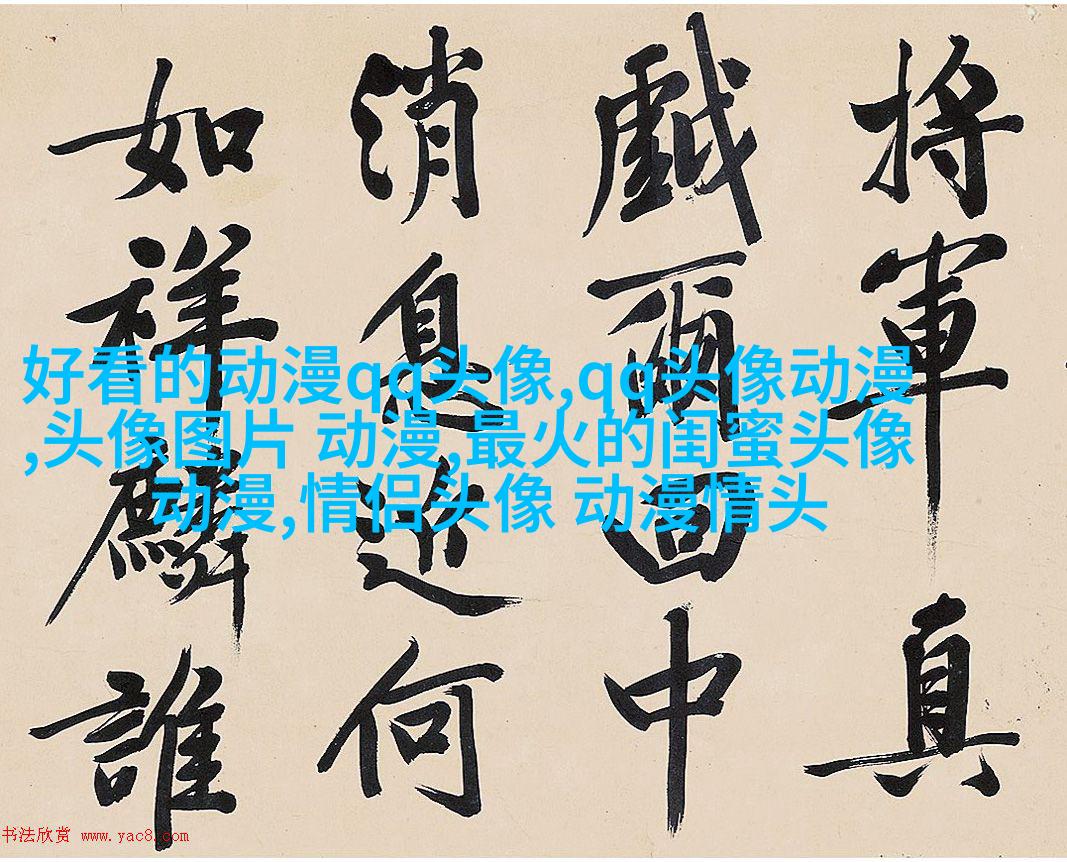 將軍真
戲爾回中
消息近何
如祥麟誰
好看的动漫qq头像,qq头像动漫
,头像图片 动漫,最火的闺蜜头像
动漫,情侣头像 动漫情头
书法欣赏 www.yac8.com